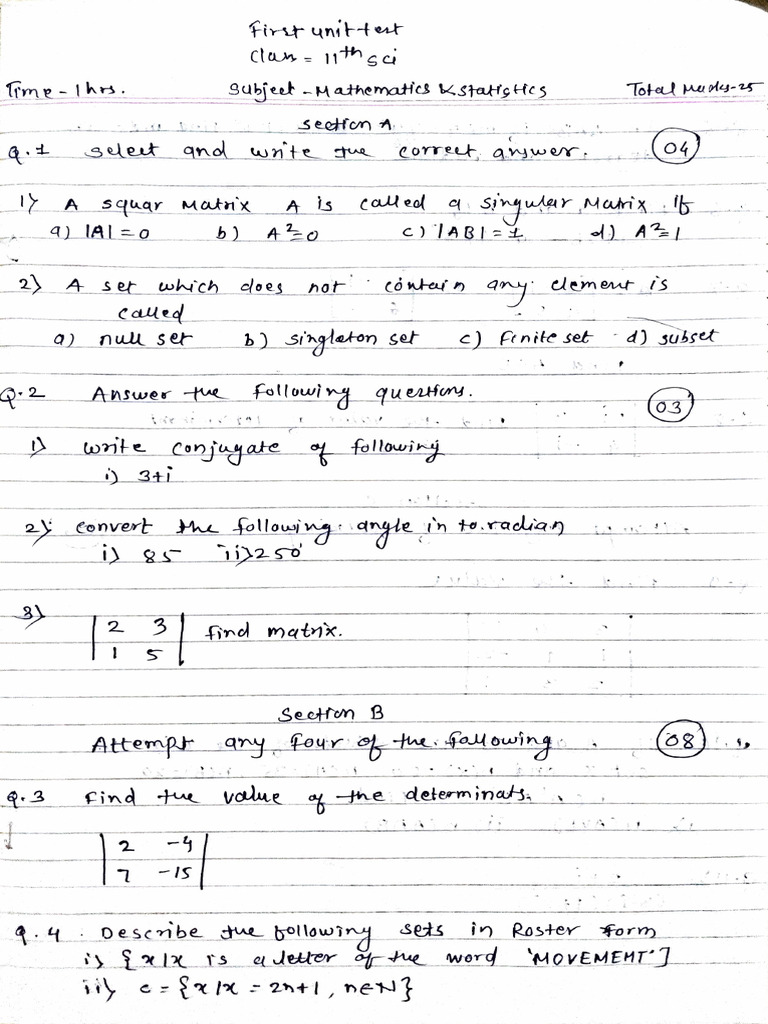 First unit test
Class = 11th sci
Time - 1 hrs. Subject - Mathematics & statistics Total Marks-25
Section A
Q.1 Select and write the correct answer. 04
1) A squar Matrix A is called a singular Matrix If
a) |A| = 0 b) A²=0 c) |AB| = 1 d) A²=1
2) A set which does not contain any element is
called
a) null set b) singleton set c) finite set d) subset
Q.2 Answer the following questions. 03
1) write conjugate of following
i) 3+i
2) convert the following angle in to radian
i) 85 ii) 250°
3) | 2 3 | find matrix.
| 1 5 |
Section B
Attempt any four of the following 08
Q.3 Find the value of the determinats.
| 2 -4 |
| 7 -15 |
Q.4 Describe the following sets in Roster form
i) {x/x is a letter of the word 'MOVEMENT']
ii) c = {x/x = 2n+1, n∈N}